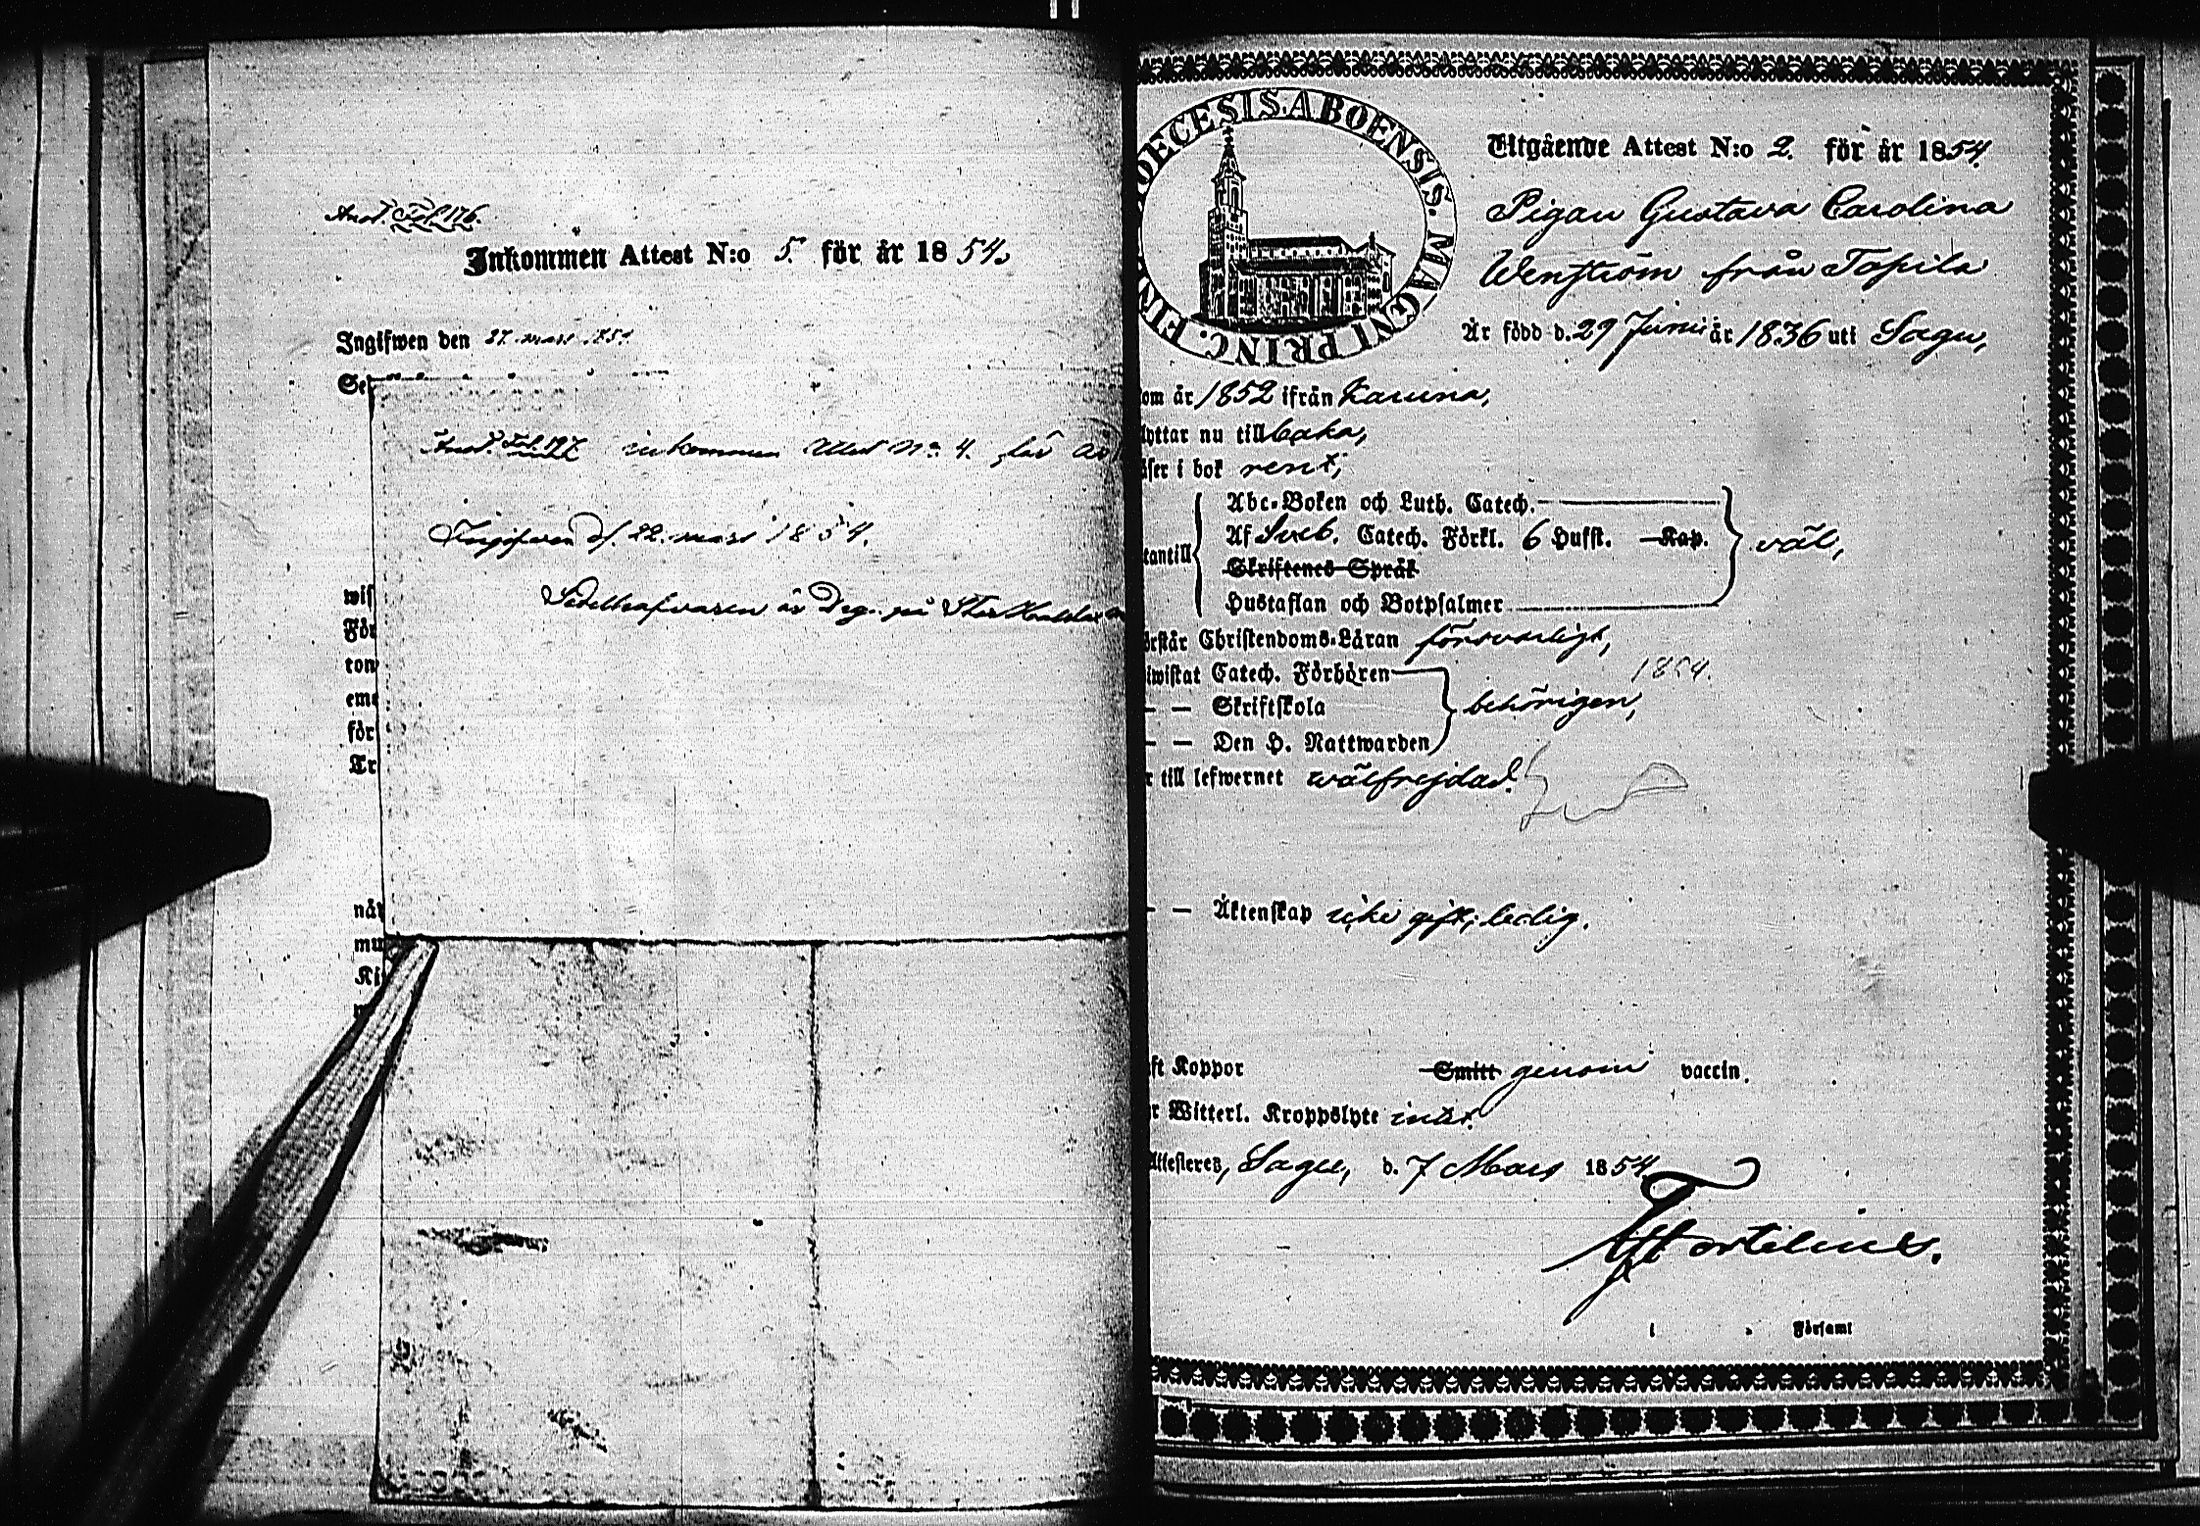 Anot. Fol. 176.
Inkommen Attest N:o 5. för år 1854.
Ingifwen den 27. mars 1854
Se
Anot. Fol. 197 inkommen Attest No 4. för år
Ingifven d. 22. mars 1854.
Sedelhafvaren är Dreng på Stor
wis
För
tom
eme
för
Tr
någ
mu
Ki
DIOECESIS. ABOENSIS. MAGNI PRINC. FIN
Utgående Attest N:o 2. för år 1854.
Pigan Gustava Carolina
Wenström från Tapila
Är född d. 29 Juni år 1836 uti Sagu,
om år 1852 ifrån Karuna,
lyttar nu tillbaka,
äser i bok rent;
tantill
Abc-Boken och Luth. Catech.
Af Sveb. Catech. Förkl. 6 Hufst. Kap.
Skriftenes Språk
Hustaflan och Botpsalmer
väl,
örstår Christendoms-Läran försvarligt,
iwistat Catech. Förhören
1854.
— — Skriftskola
behörigen,
— — Den H. Nattwarden
r till lefwernet wälfrejdad.
— — Äktenskap icke gift; ledig.
ft Koppor Smitt genom vaccin.
r Witterl. Kroppslyte intet.
Attesteres, Sagu, d. 7 Mars 1854
Hortelius.
i . Församl